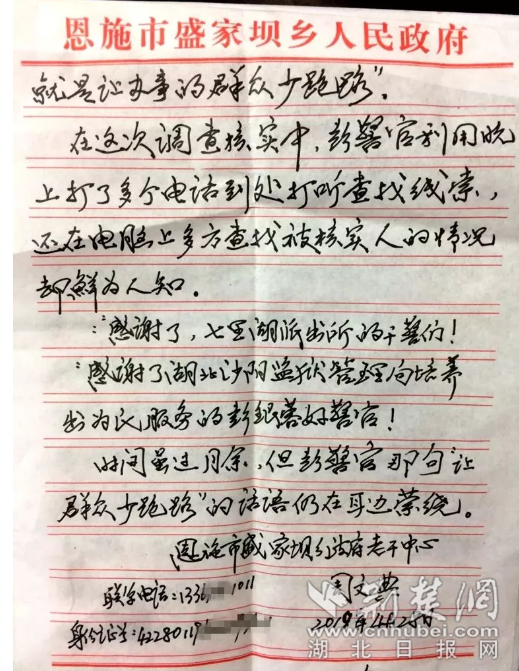 恩施市盛家坝乡人民政府
就是让办事的群众少跑路”。
在这次调查核实中，彭警官利用晚
上打了多个电话到处打听查找线索，
还在电脑上多方查找被核实人的情况
却鲜为人知。
感谢了，七里湖派出所的干警们！
感谢了湖北沙阳监狱管理局培养
出为民服务的彭银蓉好警官！
时间虽过月余，但彭警官那句“让
群众少跑路”的话语仍在耳边萦绕。
恩施市盛家坝乡政府老干中心
联系电话：1336 1011
周文典
身份证：42280119
2019年4月25日
荆楚网
www.cnhubei.com
湖北日报网